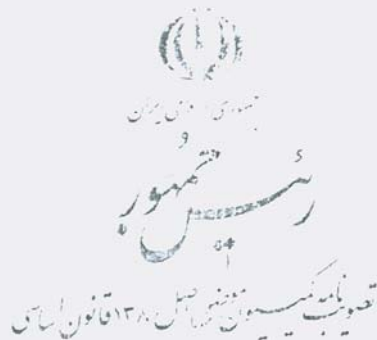 جمهوری اسلامی ایران
رئیس جمهور
تصویب نامه کمیسیون موضوع اصل ۱۳۸ قانون اساسی